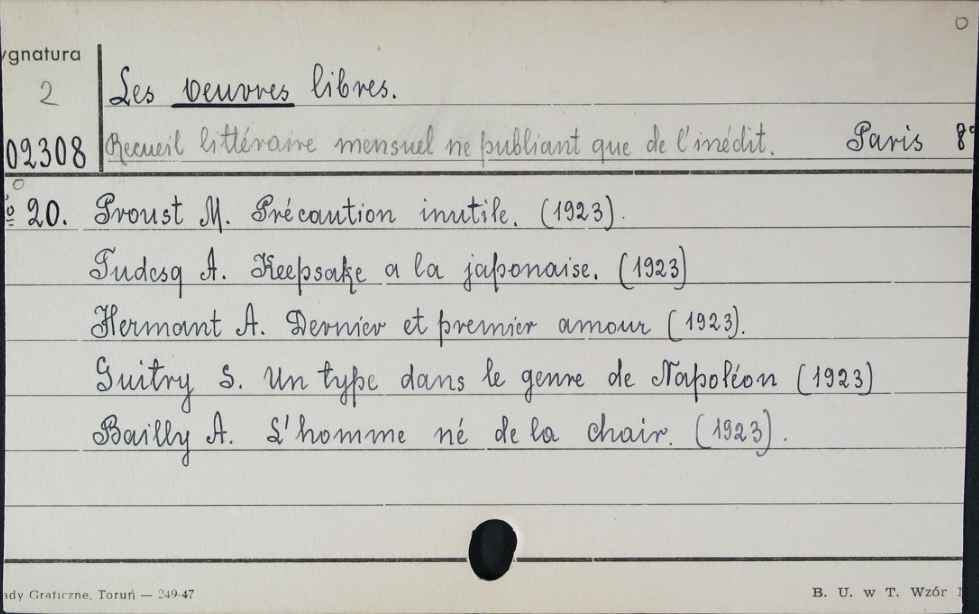 ygnatura
2 Les Oeuvres libres.
02308 Recueil littéraire mensuel ne publiant que de l'inédit. Paris 8º
№ 20. Proust M. Précaution inutile. (1923).
Tudesq A. Keepsake a la japonaise. (1923)
Hermant A. Dernier et premier amour (1923).
Guitry S. Un type dans le genre de Napoléon (1923)
Bailly A. L'homme né de la chair. (1923).
ady Graficzne, Toruń — 249-47 B. U. w T. Wzór